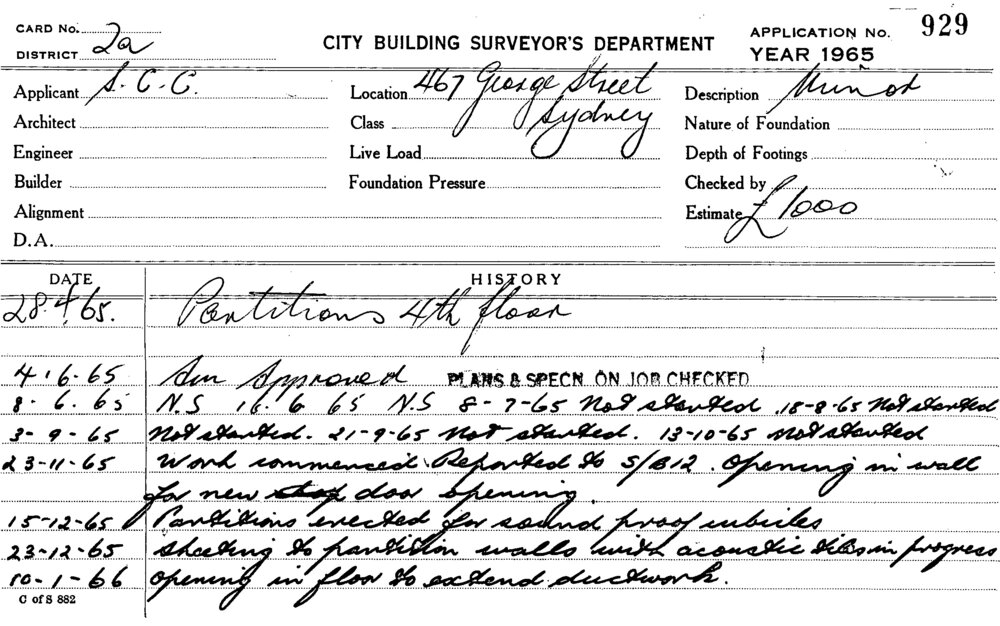 CARD No. 2a
DISTRICT
CITY BUILDING SURVEYOR'S DEPARTMENT
APPLICATION No. 929
YEAR 1965
Applicant S. C. C.
Location 467 George Street
Sydney
Description Minor
Architect
Class
Nature of Foundation
Engineer
Live Load
Depth of Footings
Builder
Foundation Pressure
Checked by
Alignment
Estimate £1000
D.A.
DATE HISTORY
28.4.65. Partitions 4th floor
4.6.65 Approved PLANS & SPECN ON JOB CHECKED
8.6.65 N.S 16 6 65 N.S 8-7-65 Not started .18-8-65 Not started
3-9-65 Not started. 21-9-65 Not started. 13-10-65 Not started
23-11-65 Work commenced. Reported to S/B12. Opening in wall
for new door opening.
15-12-65 Partitions erected for sound proof cubicles
23-12-65 Sheeting to partition walls with acoustic tiles in progress
10-1-66 Opening in floor to extend ductwork.
C of S 882